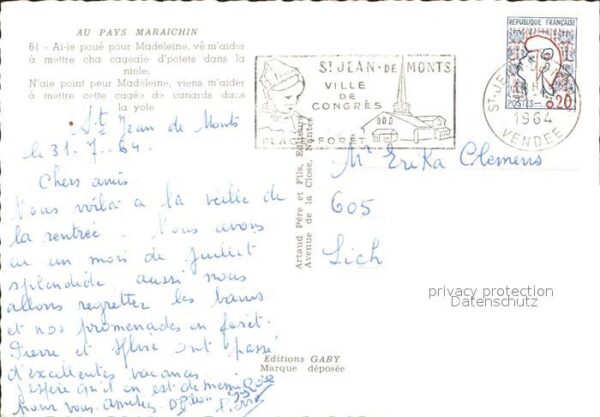 AU PAYS MARAICHIN
61 - Ai-je poué pour Madeleine, vé m'aider
à mettre cha cageaïe d'potets dans la
niole.
N'aie point peur Madeleine, viens m'aider
à mettre cette cagée de canards dans
la yole
St Jean de Monts
le 31-7-64.
Chers amis
Nous voilà à la veille de
la rentrée - Nous avons
eu un mois de juillet
splendide aussi nous
allons regrettez les bains
et nos promenades en forêt.
Pierre et Sylvie ont passé
d'excellentes vacances
J'espère qu'il en est de même
pour vous. Amitiés.
Artaud Père et Fils, Editeurs
Avenue de la Close, Nantes
St JEAN-DE MONTS
VILLE
DE
CONGRÈS
PLAGE FORÊT
REPUBLIQUE FRANÇAISE
POSTES 0,20
ST-JE
1964
VENDEE
Mr Erika Clemens
605
Lich
privacy protection
Datenschutz
Editions GABY
Marque déposée